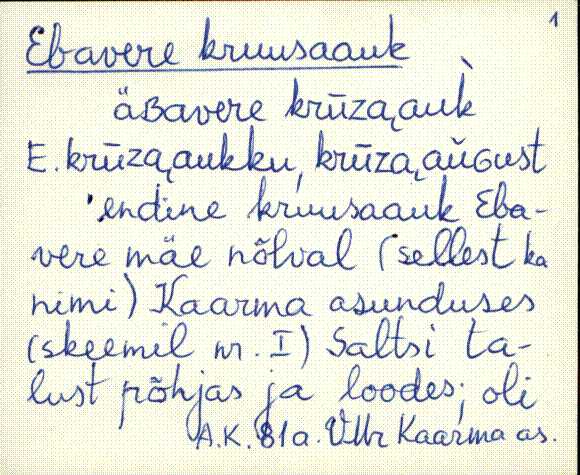 1
Ebavere kruusaauk
äʙavere krūza‿auk̀
E. krūza‿aukku, krūza‿aùɢust
endine kruusaauk Eba-
vere mäe nõlval (sellest ka
nimi) Kaarma asunduses
(skeemil nr. I) Saltsi ta-
lust põhjas ja loodes; oli
A.K. 81a. VMr Kaarma as.